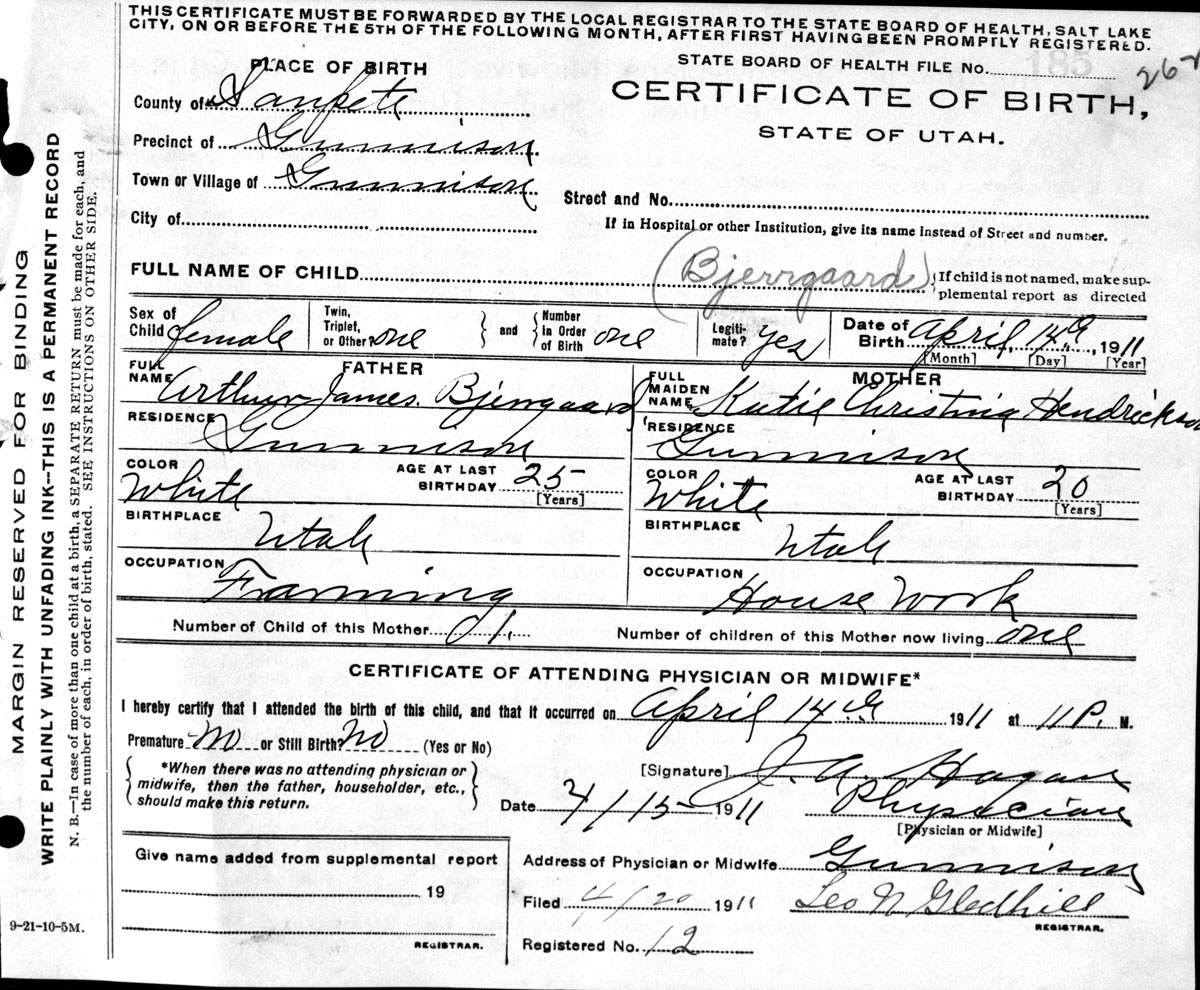 THIS CERTIFICATE MUST BE FORWARDED BY THE LOCAL REGISTRAR TO THE STATE BOARD OF HEALTH, SALT LAKE
CITY, ON OR BEFORE THE 5TH OF THE FOLLOWING MONTH, AFTER FIRST HAVING BEEN PROMPTLY REGISTERED.
PLACE OF BIRTH
County of Sanpete
Precinct of Gunnison
Town or Village of Gunnison
City of
STATE BOARD OF HEALTH FILE No. 185
262
CERTIFICATE OF BIRTH,
STATE OF UTAH.
Street and No.
If in Hospital or other Institution, give its name instead of Street and number.
FULL NAME OF CHILD (Bjerrgaard) If child is not named, make sup-
plemental report as directed
Sex of Child female Twin, Triplet, or Other? one and Number in Order of Birth one Legiti-mate? Yes Date of Birth April, 14th, 1911
[Month] [Day] [Year]
FATHER
FULL NAME Arthur James Bjerrgaard
RESIDENCE Gunnison
COLOR White AGE AT LAST BIRTHDAY 25 [Years]
BIRTHPLACE Utah
OCCUPATION Framing
MOTHER
FULL MAIDEN NAME Katie Christina Hendrickson
RESIDENCE Gunnison
COLOR White AGE AT LAST BIRTHDAY 20 [Years]
BIRTHPLACE Utah
OCCUPATION House Work
Number of Child of this Mother 01. Number of children of this Mother now living one
CERTIFICATE OF ATTENDING PHYSICIAN OR MIDWIFE*
I hereby certify that I attended the birth of this child, and that it occurred on April 14th 1911 at 11 P. M.
Premature No or Still Birth? No (Yes or No)
*When there was no attending physician or
midwife, then the father, householder, etc.,
should make this return.
[Signature] J. A. Hagan
Date 4/15 1911 Physician
[Physician or Midwife]
Give name added from supplemental report
19
REGISTRAR.
Address of Physician or Midwife Gunnison
Filed 4/20 1911 Leo N Gledhill
REGISTRAR.
Registered No. 12
9-21-10-5M.
MARGIN RESERVED FOR BINDING
WRITE PLAINLY WITH UNFADING INK--THIS IS A PERMANENT RECORD
N. B.—In case of more than one child at a birth, a SEPARATE RETURN must be made for each, and
the number of each, in order of birth, stated. SEE INSTRUCTIONS ON OTHER SIDE.